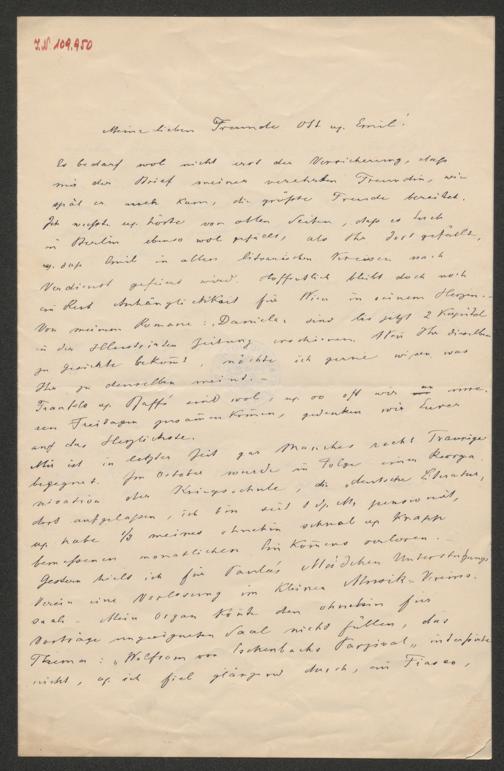 I.N. 109.950
Meine lieben Freunde Ott u. Emil!
Es bedarf wol nicht erst der Versicherung, daß
mir der Brief meiner verehrten Freundin, wie
spät er auch kam, die größte Freude bereitet.
Ich wußte u. hörte von allen Seiten, daß es Euch
in Berlin ebenso wol gefällt, als Ihr dort gefällt,
u. daß Emil in allen literarischen Kreisen nach
Verdienst gefeiert wird. Hoffentlich bleibt doch noch
ein Rest Anhänglichkeit für Wien in seinem Herzen.
Von meinem Romane: „Daniela" sind bis jetzt 2 Kapitel
in der Zeitung erschienen. Wenn Ihr dieselben
zu Gesichte bekommt, möchte ich gerne wissen was
Ihr zu denselben meint. –
u. sind wol, u. so oft wir an
Freitagen zusammenkommen, gedenken wir Eurer
auf das Herzlichste.
Mir ist in letzter Zeit gar Manches recht Traurige
begegnet. Im October wurde in Folge einer Reorga-
nisation der Kriegsschule, die deutsche Literatur,
dort aufgelassen, ich bin seit 1 pensionirt,
u. habe 1/3 meines ohnehin schmal u. knapp
bemessenen monatlichen Einkommens verloren. –
Gestern hielt ich für Paula's Mädchen Unterstützungs
Verein eine Vorlesung im kleinen Musik-Vereins-
saale. Mein Organ konnte den ohnehin für
Vorträge ungeeigneten Saal nicht füllen, das
Thema: „Wolfram von Eschenbachs Parzival" interessirte
nicht, u. ich fiel glänzend durch, ein Fiasco,